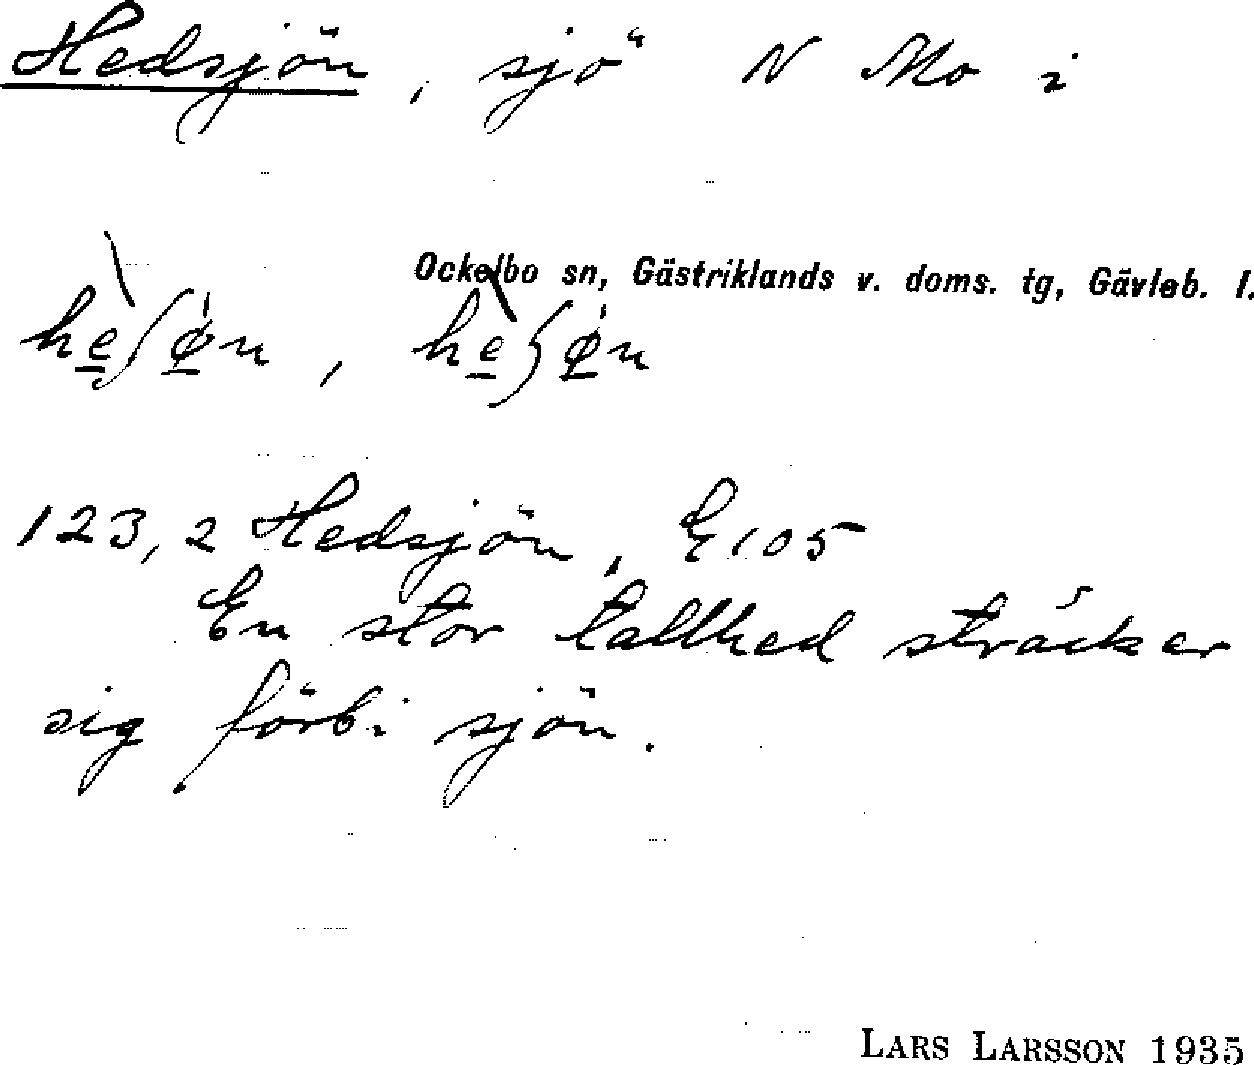 Hedsjön, sjö N Mo i
Ockelbo sn, Gästriklands v. doms. tg, Gävleb. l.
123,2 Hedsjön, E105
En stor tallhed sträcker
sig förbi sjön.
LARS LARSSON 1935